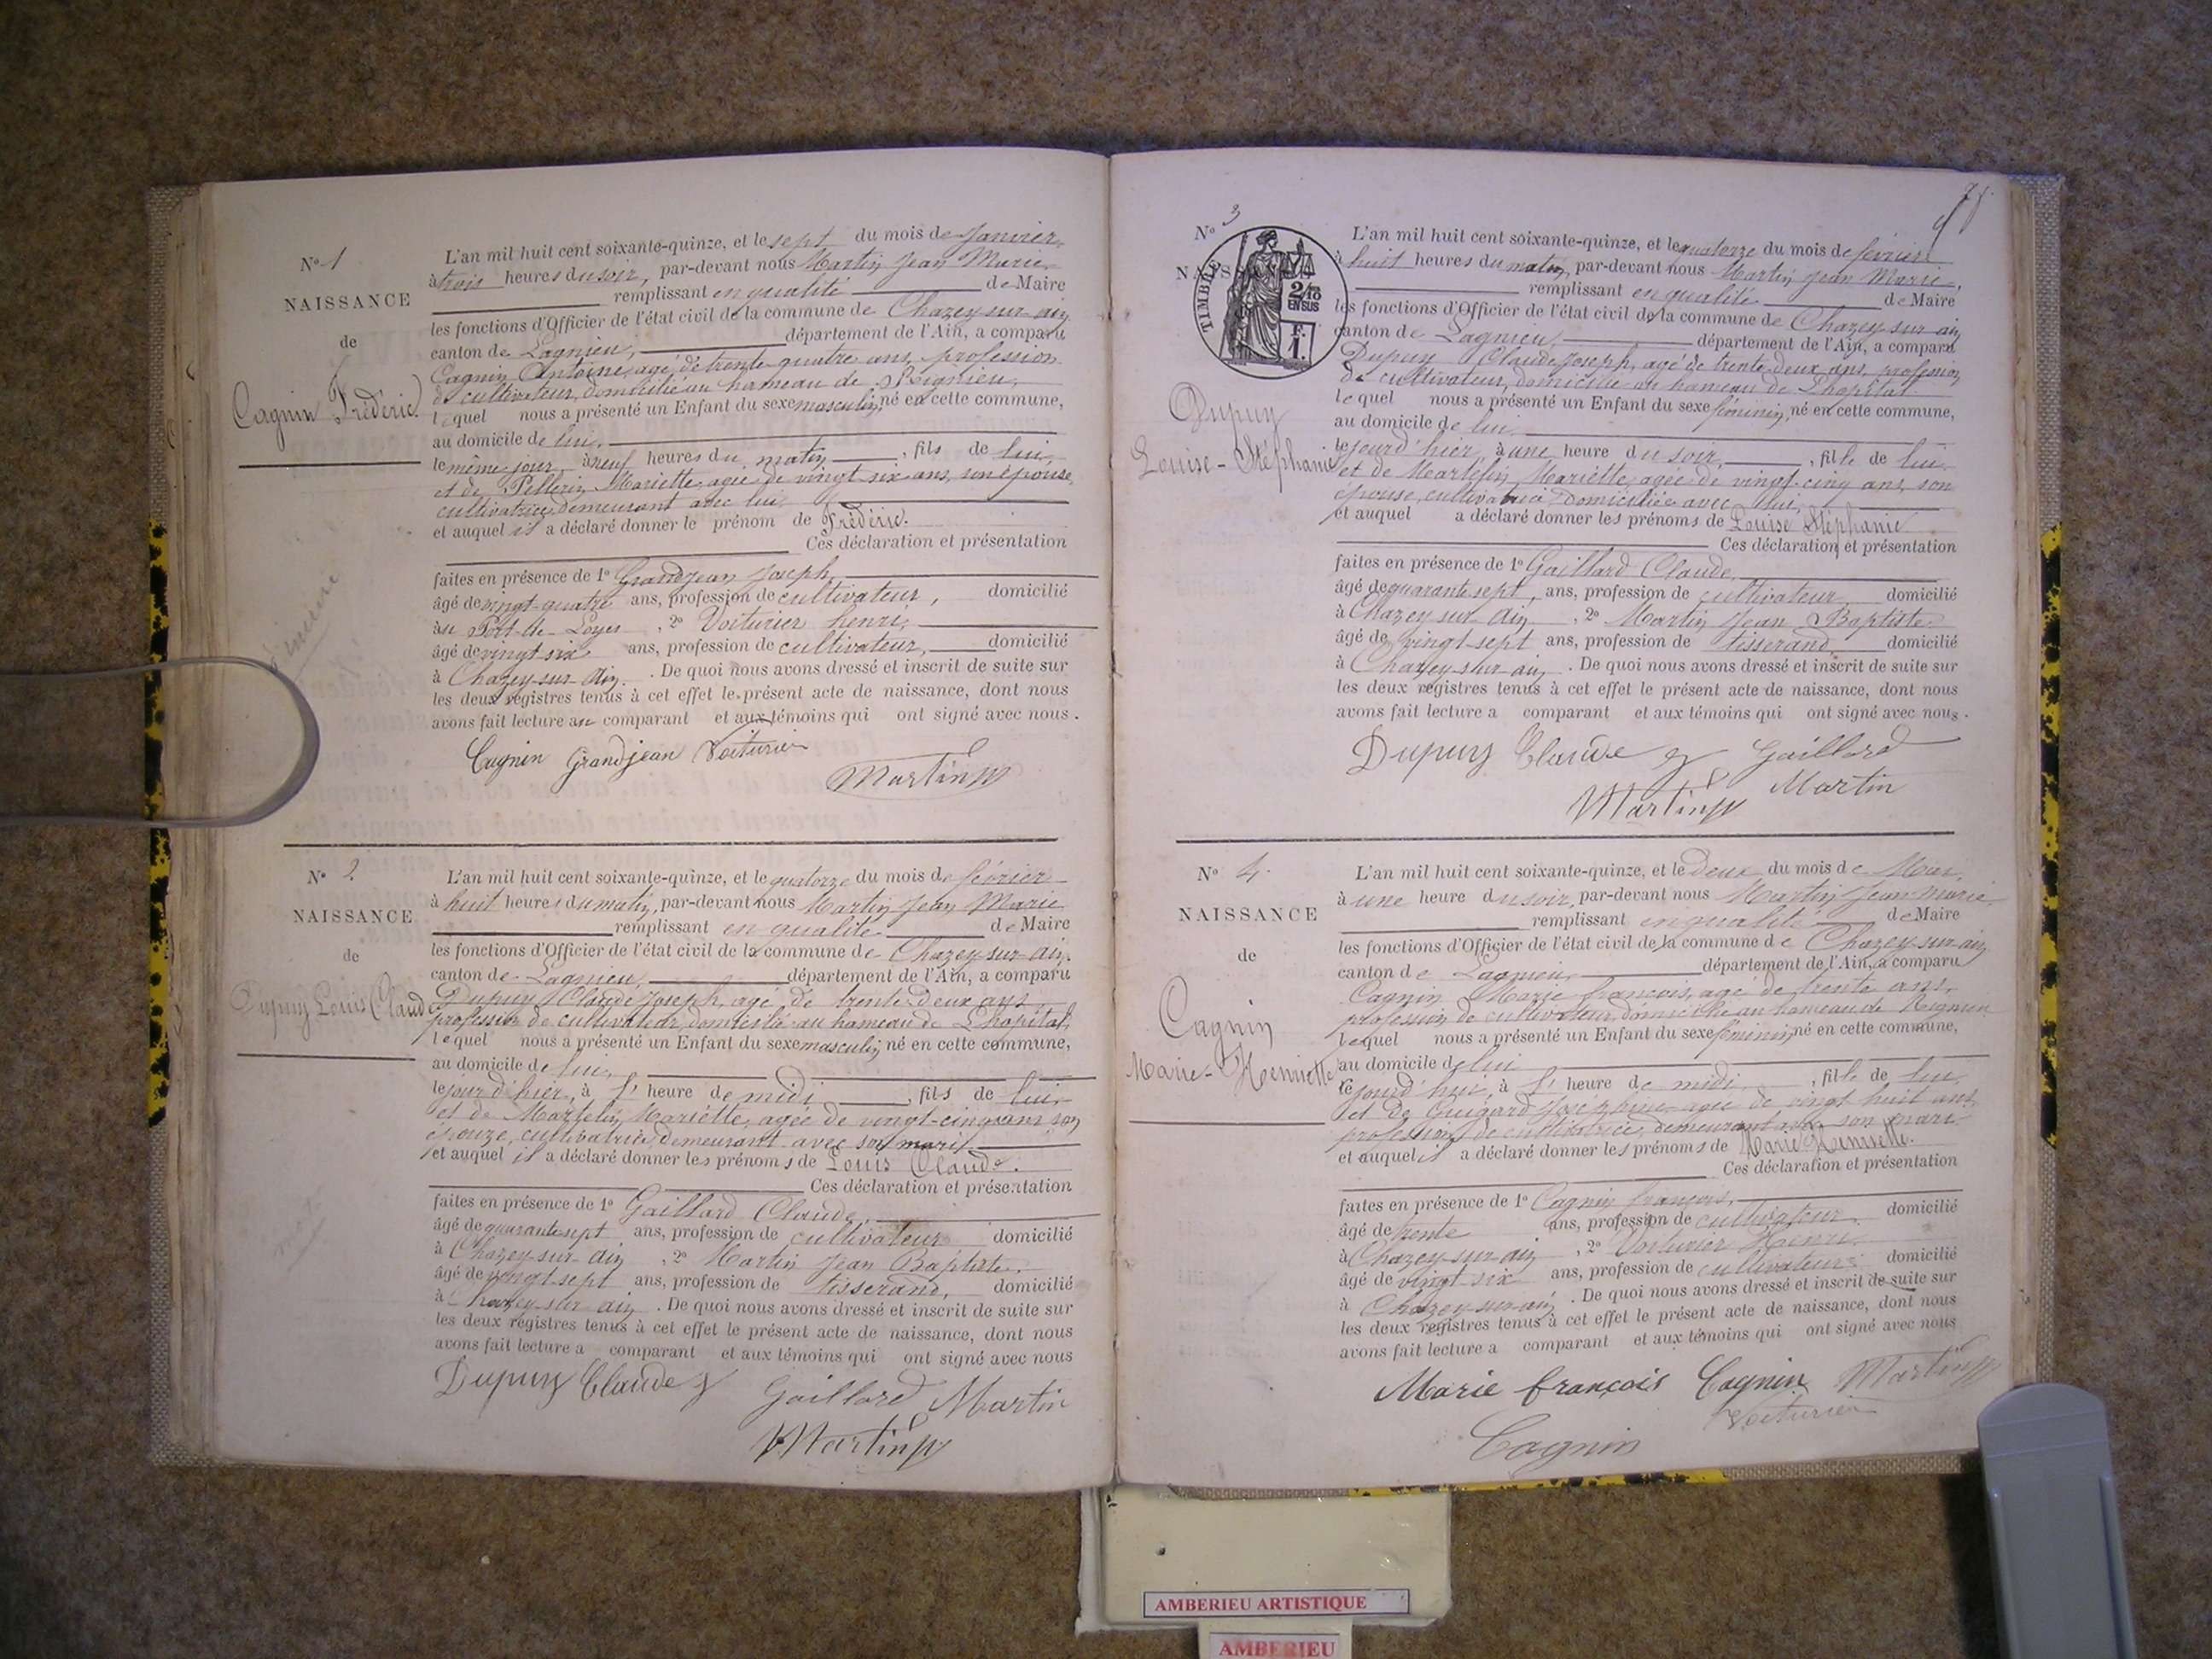 N° 1
NAISSANCE
de
Cagnin Frédéric
L'an mil huit cent soixante-quinze, et le sept du mois de Janvier
à trois heures du soir, par-devant nous Martin Jean Marie
remplissant en qualité de Maire
les fonctions d'Officier de l'état civil de la commune de Chazey-sur-ain
canton de Lagnieu, département de l'Ain, a comparu
Cagnin Antoine, agé de trente quatre ans, profession
de cultivateur, domicilié au hameau de Rignieu,
lequel nous a présenté un Enfant du sexe masculin, né en cette commune,
au domicile de lui,
le même jour, à neuf heures du matin, fils de lui,
et de Pellerin Mariette, agée de vingt six ans, son épouse,
cultivatrice, demeurant avec lui,
et auquel il a déclaré donner le prénom de Frédéric.
Ces déclaration et présentation
faites en présence de 1° Grandjean Joseph,
âgé de vingt-quatre ans, profession de cultivateur, domicilié
au Port-de-Loyes, 2° Voiturier henri,
âgé de vingt six ans, profession de cultivateur, domicilié
à Chazey-sur-Ain. De quoi nous avons dressé et inscrit de suite sur
les deux registres tenus à cet effet le présent acte de naissance, dont nous
avons fait lecture au comparant et aux témoins qui ont signé avec nous.
Cagnin Grandjean Voiturier
Martin
N° 2
NAISSANCE
de
Dupuy Louis Claude
L'an mil huit cent soixante-quinze, et le quatorze du mois de février
à huit heures du matin, par-devant nous Martin Jean Marie
remplissant en qualité de Maire
les fonctions d'Officier de l'état civil de la commune de Chazey-sur-Ain.
canton de Lagnieu, département de l'Ain, a comparu
Dupuy Claude Joseph, agé de trente-deux ans,
profession de cultivateur, domicilié au hameau de Lhopital,
lequel nous a présenté un Enfant du sexe masculin, né en cette commune,
au domicile de lui,
le jour d'hier, à l' heure de midi, fils de lui,
et de Martelin Mariette, agée de vingt-cinq ans, son
épouze, cultivatrice, demeurant avec son mari
et auquel il a déclaré donner les prénoms de Louis Claude.
Ces déclaration et présentation
faites en présence de 1° Gaillard Claude,
âgé de quarante sept ans, profession de cultivateur domicilié
à Chazey-sur-Ain, 2° Martin Jean Baptiste.
âgé de vingt-sept ans, profession de tisserand, domicilié
à Chazey-sur-ain. De quoi nous avons dressé et inscrit de suite sur
les deux registres tenus à cet effet le présent acte de naissance, dont nous
avons fait lecture a comparant et aux témoins qui ont signé avec nous
Dupuy Claude Gaillard Martin
Martin
N° 3
NAISSANCE
TIMBRE
2/10
EN SUS
F.
1.
Dupuy
Louise-Stéphanie
L'an mil huit cent soixante-quinze, et le quatorze du mois de février
à huit heures du matin, par-devant nous Martin Jean Marie,
remplissant en qualité de Maire
les fonctions d'Officier de l'état civil de la commune de Chazey-sur-ain
canton de Lagnieu, département de l'Ain, a comparu
Dupuy Claude Joseph, agé de trente-deux ans, profession
de cultivateur, domicilié au hameau de Lhopital
lequel nous a présenté un Enfant du sexe féminin, né en cette commune,
au domicile de lui
le jour d'hier, à une heure du soir, fille de lui
et de Martelin Mariette, agée de vingt-cinq ans, son
épouse, cultivatrice domiciliée avec lui,
et auquel a déclaré donner les prénoms de Louise Stéphanie
Ces déclaration et présentation
faites en présence de 1° Gaillard Claude,
âgé de quarante sept, ans, profession de cultivateur, domicilié
à Chazey-sur-Ain, 2° Martin Jean Baptiste
âgé de vingt-sept ans, profession de tisserand, domicilié
à Chazey-sur-ain. De quoi nous avons dressé et inscrit de suite sur
les deux registres tenus à cet effet le présent acte de naissance, dont nous
avons fait lecture a comparant et aux témoins qui ont signé avec nous.
Dupuy Claude Gaillard
Martin Martin
N° 4
NAISSANCE
de
Cagnin
Marie-Henriette
L'an mil huit cent soixante-quinze, et le deux du mois de Mars,
à une heure du soir, par-devant nous Martin Jean-marie
remplissant en qualité de Maire
les fonctions d'Officier de l'état civil de la commune de Chazey-sur-ain
canton de Lagnieu département de l'Ain, a comparu
Cagnin Marie françois, agé de trente ans,
profession de cultivateur, domicilié au hameau de Rignieu
lequel nous a présenté un Enfant du sexe féminin, né en cette commune,
au domicile de lui
le jourd'hui, à l' heure de midi, fille de lui
et de Guigard Joséphine agée de vingt huit ans
profession de cultivatrice, demeurant avec son mari
et auquel il a déclaré donner les prénoms de Marie Henriette.
Ces déclaration et présentation
faites en présence de 1° Cagnin françois,
âgé de trente ans, profession de cultivateur domicilié
à Chazey-sur-ain, 2° Voiturier Henri
âgé de vingt-six ans, profession de cultivateur domicilié
à Chazey-sur-ain. De quoi nous avons dressé et inscrit de suite sur
les deux registres tenus à cet effet le présent acte de naissance, dont nous
avons fait lecture a comparant et aux témoins qui ont signé avec nous
Marie françois Cagnin Martin
Voiturier
Cagnin
AMBERIEU ARTISTIQUE
AMBERIEU